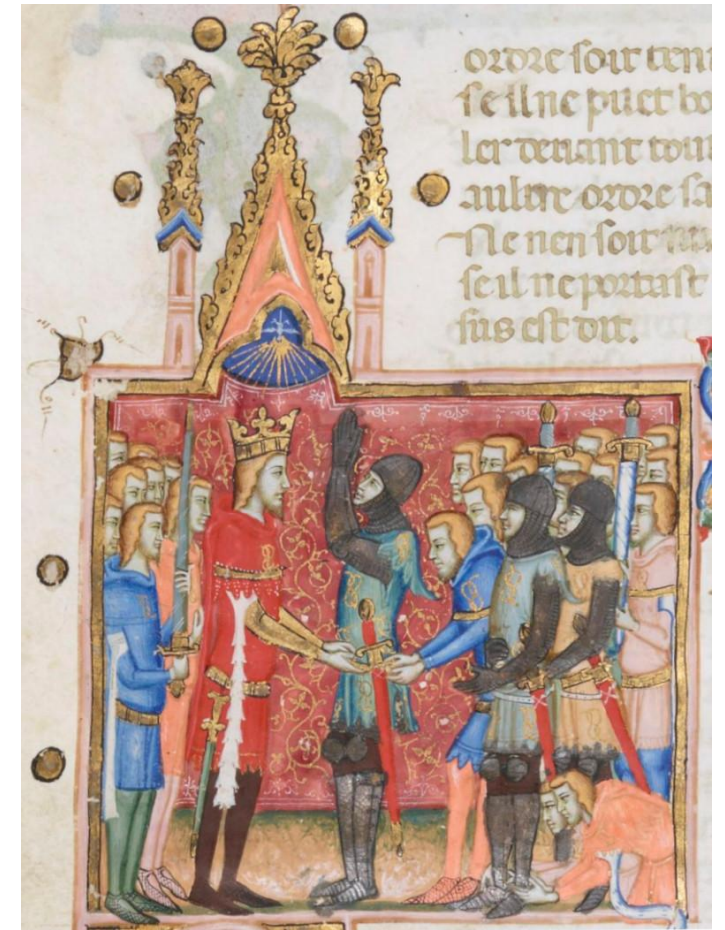 ordre soit ten
se il ne puet bo
ler deuant tout
aultre ordre sa
Ne nen soit
se il ne portast
sus est dit.